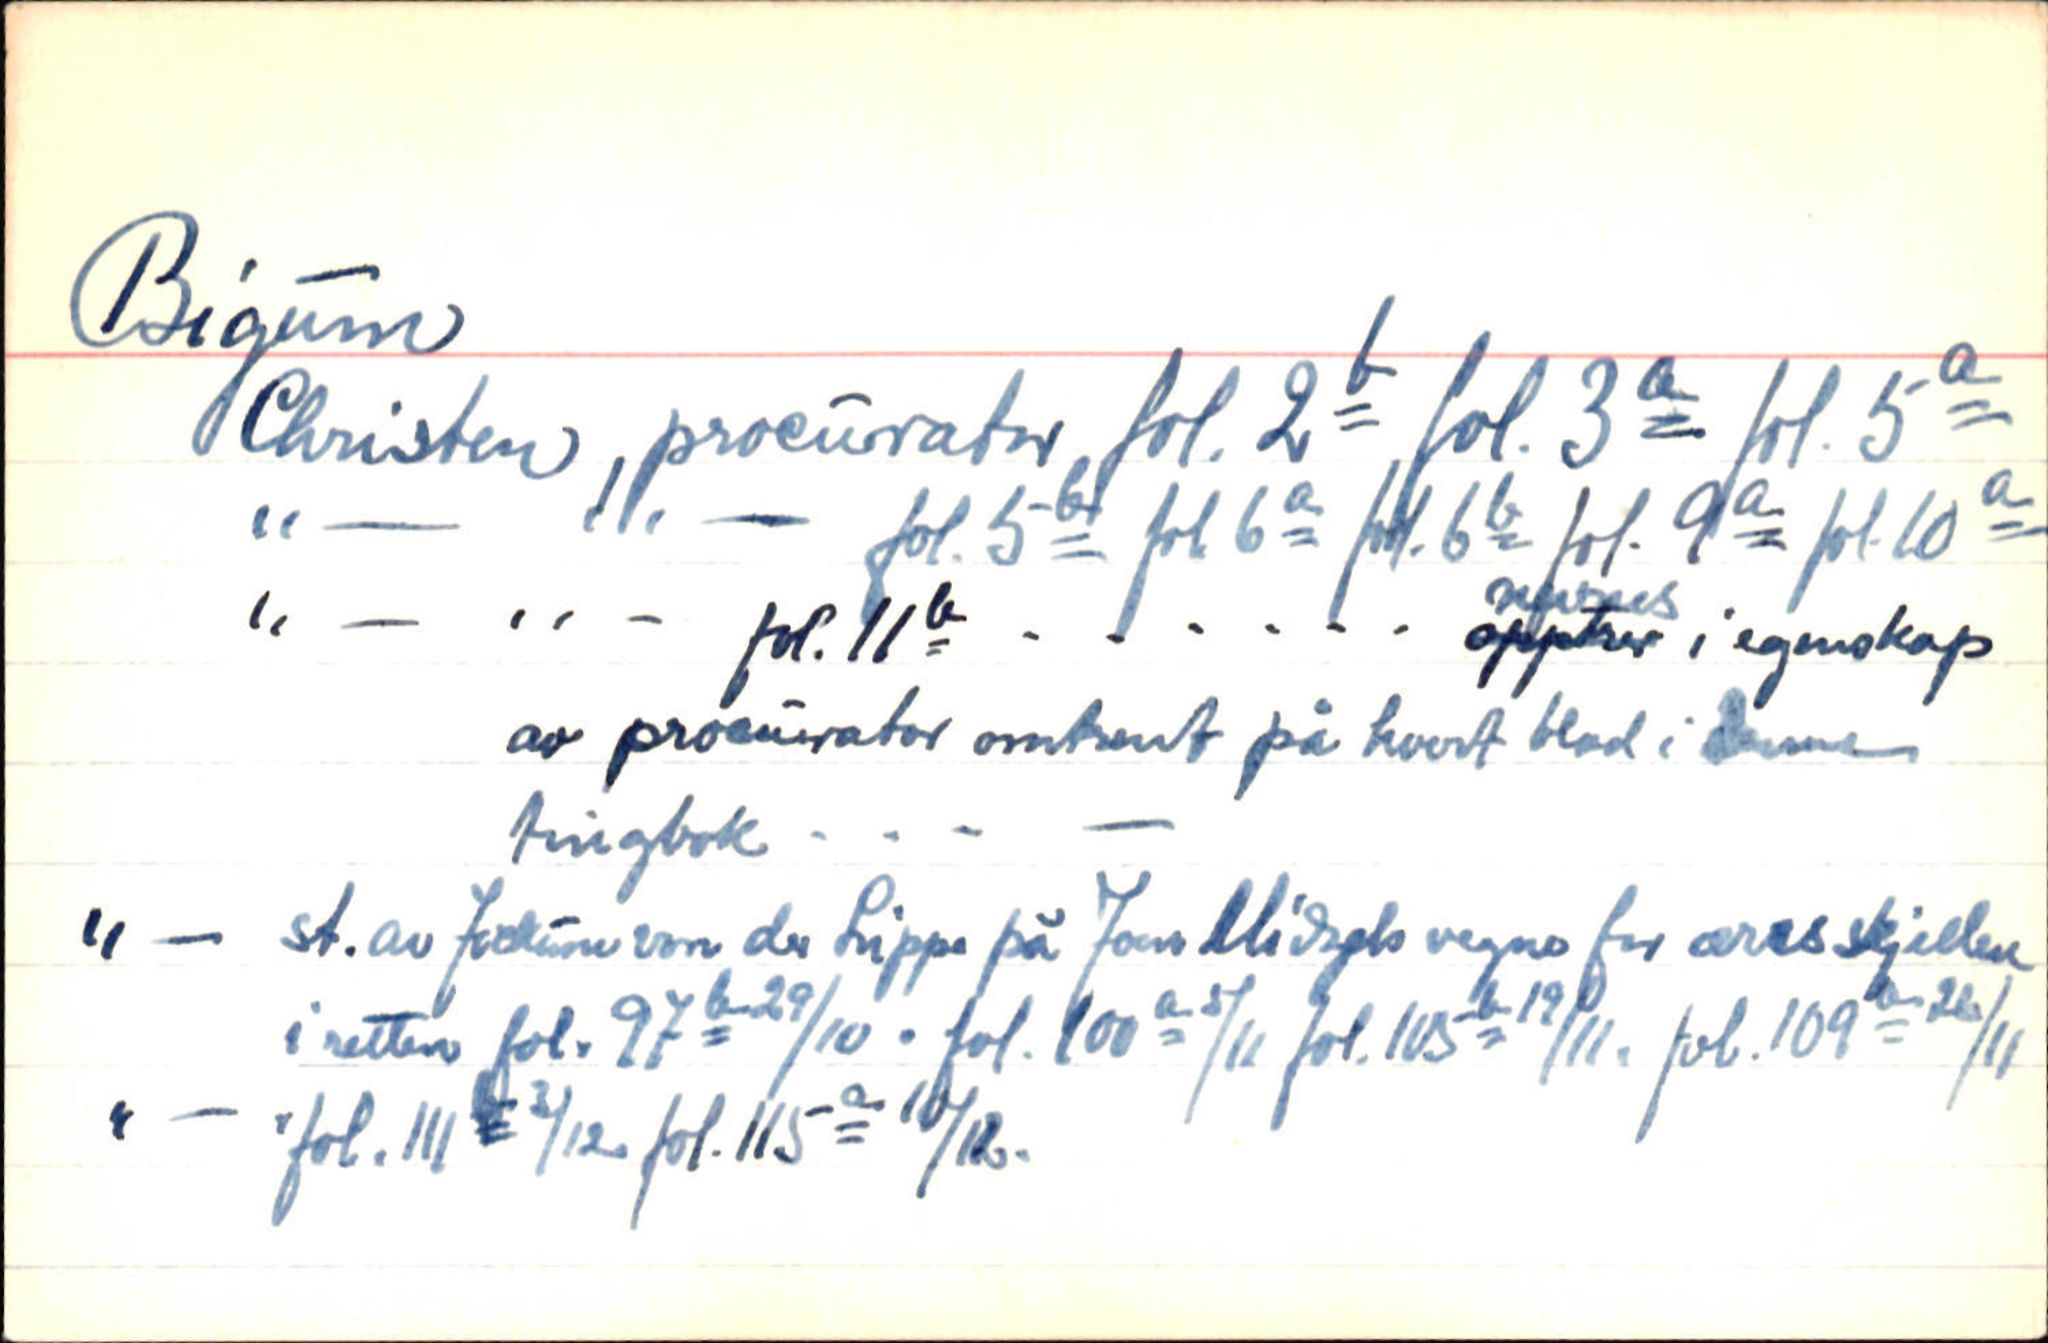 Bigum
Christen, procurator, fol. 2b fol. 3a fol. 5a
"— "— fol. 5b fol 6a fol. 6b fol. 9a fol. 10a
"— "— fol. 11b - - - - - - nevnes opptrer i egenskap
av procurator omtrent på hvert blad i denne
tingbok - - - —
"— st. av Jockum von der Lippe på Jan vegne for æresskjellen
i retten fol. 97b 29/10. fol. 100a 5/11 fol. 105b 19/11. fol. 109a 26/11
"— fol. 111 3/12. fol. 115a 10/12.